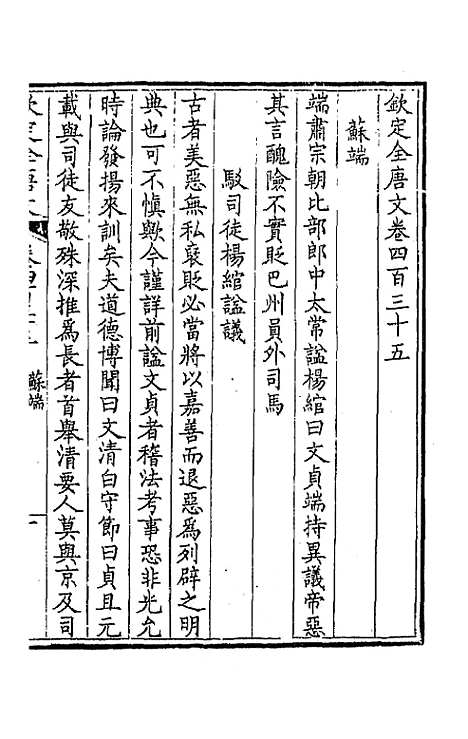 欽定全唐文卷四百三十五
蘇端
端肅宗朝比部郎中太常謚楊綰曰文貞端持異議帝惡
其言醜險不實貶巴州員外司馬
駁司徒楊綰謚議
古者美惡無私襃貶必當將以嘉善而退惡爲列辟之明
典也可不慎歟今謹詳前謚文貞者稽法考事恐非光允
時論發揚來訓矣夫道德博聞曰文清白守節曰貞且元
載與司徒友敬殊深推爲長者首舉清要人莫與京及司
蘇端
一